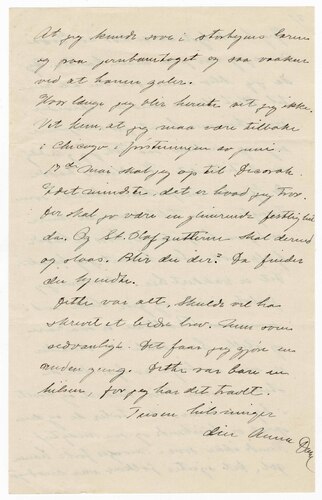 At jeg kunde sove i storbyens larm
og paa jernbanetoget og saa vaakne
ved at hanen galer.
Hvor længe jeg blir herute vet jeg ikke.
Vet kun, at jeg maa være tilbake
i Chicago i
17de Mai skal jeg op til Decorah.
I det mindste, det er hvad jeg tror.
Der skal jo være en glimrende festlighet
da. Og St. Olaf gutterne skal derned
og slaas. Blir du der? Da finder
du kjendte.
Dette var alt, skulde vel ha
skrevet et bedre brev. Men som
sedvanlig. Det faar jeg gjøre en
anden gang. Dette var bare en
hilsen, for jeg har det travlt.
Tusen hilsninger
din Anna